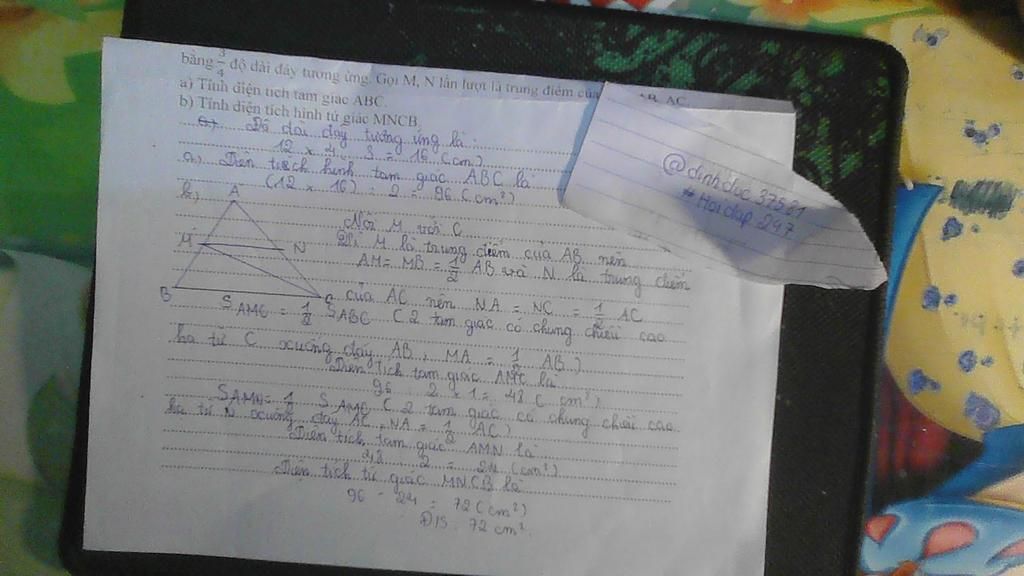 bằng 3/4 độ dài đáy tương ứng. Gọi M, N lần lượt là trung điểm của AB, AC.
a) Tính diện tích tam giác ABC.
b) Tính diện tích hình tứ giác MNCB.
Độ dài đáy tương ứng là :
12 x 4 : 3 = 16 (cm)
a) Diện tích hình tam giác ABC là
(12 x 16) : 2 = 96 (cm²)
b)
A
M
N
B
C
Nối M với C
Vì M là trung điểm của AB nên
AM = MB = 1/2 AB và N là trung điểm
của AC nên NA = NC = 1/2 AC
SAMC = 1/2 SABC ( 2 tam giác có chung chiều cao
hạ từ C xuống đáy AB, MA = 1/2 AB)
Diện tích tam giác AMC là
96 : 2 x 1 = 48 ( cm²)
SAMN = 1/2 SAMC ( 2 tam giác có chung chiều cao
hạ từ N xuống đáy AC, NA = 1/2 AC)
Diện tích tam giác AMN là
48 : 2 = 24 (cm²)
Diện tích tứ giác MNCB là
96 - 24 = 72 (cm²)
Đ/S : 72 cm²
@dinhduc37521
# Hoidap 247